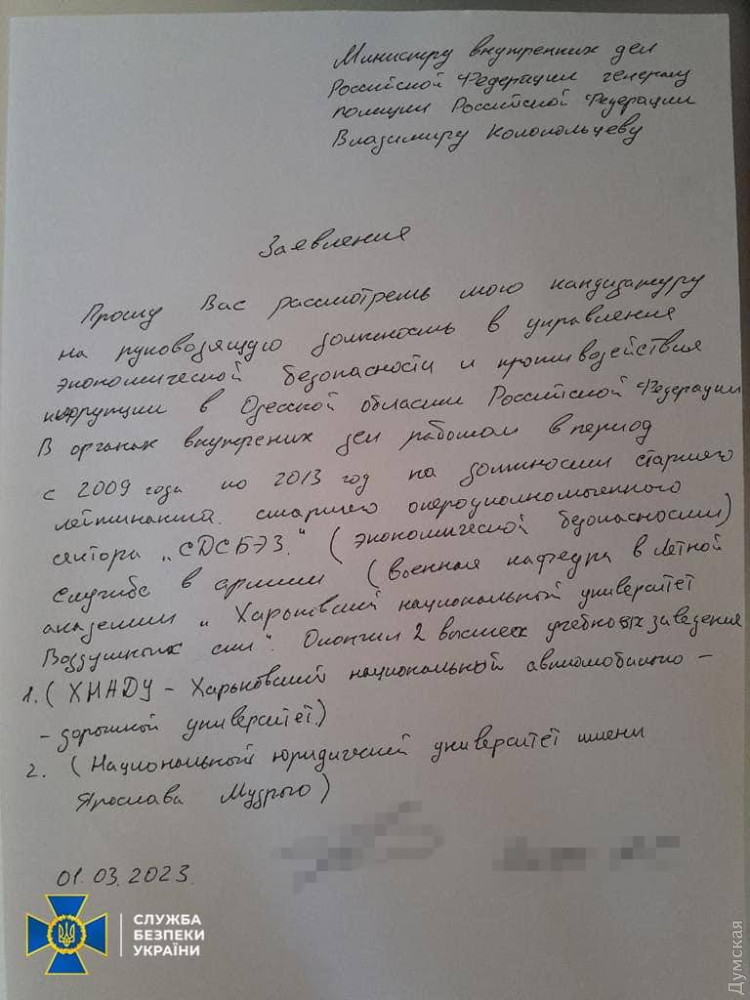 Министру внутренних дел
Российской Федерации генералу
полиции Российской Федерации
Владимиру Колокольцеву
Заявления
Прошу Вас рассмотреть мою кандидатуру
на руководящую должность в управления
экономической безопасности и противодействия
коррупции в Одесской области Российской Федерации
В органах внутрених дел работал в период
с 2009 года по 2013 год на должности старшего
лейтинанта. старшего опероуполномоченного
сектора "СДСБЭЗ." (экономической безопасности)
Служба в армии (военная кафедра в Летной
академии "Харьковский национальной университет
Воздушных сил". Окончил 2 высших учебных заведения
1. (ХНАДУ - Харьковский национальной автомобильно -
- дорожной университет)
2. (Национальный юридический университет имени
Ярослава Мудрого)
01.03.2023
СЛУЖБА
БЕЗПЕКИ
УКРАЇНИ
Думская